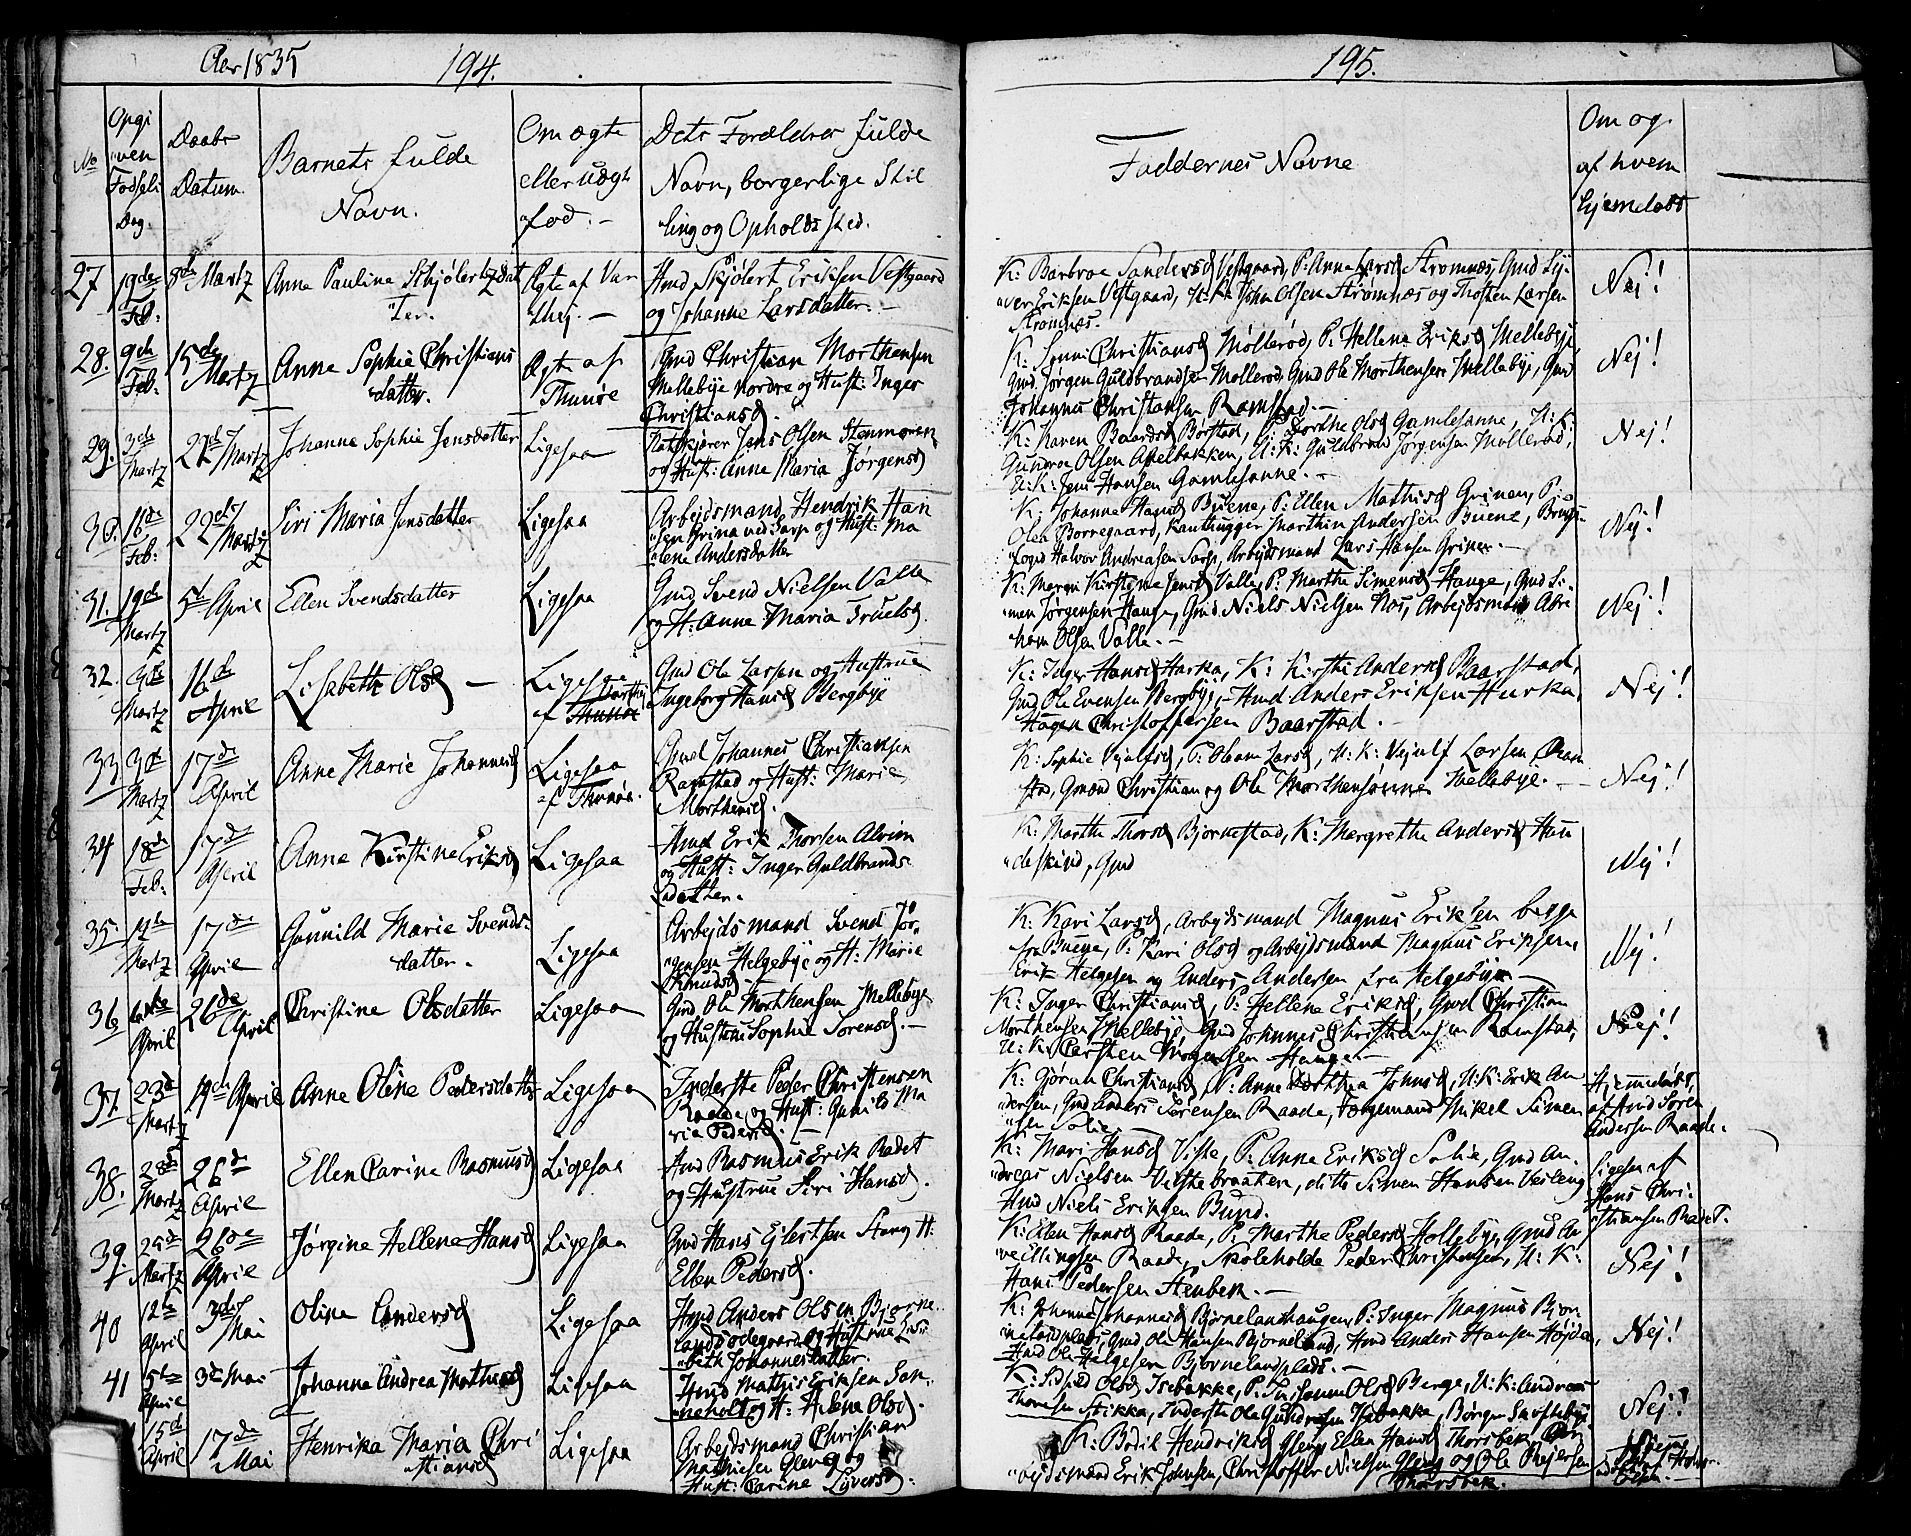 Aar 1835
194.
195.
No
Opgi
ven
Fødsels
Dag.
Daabs
Datum.
Barnets fulde
Navn.
Om ægte
eller uægte
fød. –
Dets Forældres fulde
Navn, borgerlige Stil
ling og Opholds sted.
Faddernes Navne
Om og
af hvem
hjemdøbt
27
19de
Feb.
8de Martz
Anna Paulina Schjølertzdat
ter.
Ægte af Var
thej. –
Hmd Skjölert Eriksen Vestgaard
og Johanne Larsdatter. –
K: Barbroe Sandersd Vestgaard, P: Anne Larsd Strømnæs, Gmd Sy-
ver Eriksen Vestgaard, U: K: John Olsen Strømnæs og Thosten Larsen
Strømnæs.
Nej!
28.
9de
Feb:
15de
Martz
Anne Sophie Christians
datter.
Ægte af
Thunøe
Gmd Christian Morthensen
Mellebye Nordre og Hust: Inger
Christiansd.
K: Christiansd Møllerød, P: Hellene Eriksd Mellebye
Gmd Jørgen Guldbrandsen Møllerød, Gmd Ole Morthensen Mellebye, Gmd
Johannes Christiansen Ramstad. –
Nej!
29.
3de
Martz
22de Martz
Johanne Sophie Jensdatter
Ligesaa
Jens Olsen Stenmoren
og Hust: Anne Maria Jørgensd
K: Karen Baardsd Borstad, P: Dorthe Olsd Gamlesanne, U: K:
Gunder Olsen Appelbakken, U: K: Guldbrand Jørgensen Møllerød,
U: K: Jens Hansen Gamlesanne. –
Nej!
30.
16de
Feb:
22de
Martz
Siri Maria Jensdatter
Ligesaa
Arbejdsmand, Hendrik Han
sen Grina ved Sarp og Hust: Ma
lene Andersdatter
K: Johanne Hansd Buene, P: Ellen Mathisd Grinen, P:
Olea Borregaard, Marthin Andersen Buene, Brugs-
foged Halvor Andreasen Sarp, Arbejdsmand Lars Hansen Grinen. –
Nej!
31.
19de
Martz
5te April
Ellen Svendsdatter
Ligesaa
Gmd Svend Nielsen Valle
og H: Anne Maria Truelsd.
K: Maren Kirstine Jensd Valle, P: Marthe Simensd Hauge, Gmd Si-
men Jørgensen Hauge, Gmd Niels Nielsen Næs, Arbejdsmand Abra
ham Olsen Valle. –
Nej!
32.
9de
Martz
16de
April
Lisabeth Olsd –
Ligesaa
af Thunøe
Gmd Ole Larsen og Hustrue
Ingeborg Hansd Bergbye
K: Inger Hansd Harka, K: Kirsthi Andersd Baarstad,
Gmd Ole Evensen Bergbye, – Hmd Anders Eriksen Hurka,
Haagen Christoffersen Baarstad. –
Nej!
33
3de
Martz
17de
April
Anne Marie Johannesd
Ligesaa
af Thunøe.
Gmd Johannes Christiansen
Ramstad og Hust: Marie
Morthensd.
K: Sophie Vejulfsd, P: Larsd, U: K: Vejulf Larsen Ram
stad, Gmænd Christian og Ole Morthensønner Mellebye. –
Nej!
34
18de
Feb:
17de
April
Anne Kirstine Eriksd
Ligesaa
Hmd Erik Thorsen Alvim
og Hust: Inger Guldbrands-
datter.
K: Marthe Thorsd Bjørnestad, K: Margrethe Andersd Hun
deskind, Gmd
Nej!
35.
Martz
17de
April
Gunnild Marie Svends-
datter.
Ligesaa
Arbejdsmand Svend Jør-
gensen Helgebye og H: Marie
Knudsd.
K: Kari Larsd, Arbejdsmand Magnus Eriksen begge
fra Buene, P: Kari Olsd og Arbejdsmand Magnus Eriksen,
Erik Helgesen og Anders Andersen fra Helgebye. –
Nej!
36
April
26de
April
Christine Olsdatter
Ligesaa
Gmd, Ole Morthensen Mellebye
og Hustrue Sophie Sørensd. –
K: Inger Christiansd, P: Hellene Eriksd, Gmd Christian
Morthensen Mellebye, Gmd Johannes Christiansen Ramstad,
U: K: Carsten Jørgensen Hauge. –
Nej!
37.
23de
Martz
19de April
Anne Oline Pedersdatter
Ligesaa
Inderste Peder Christensen
Raade og Hust: Gunild Ma
ria Pedersd. –
K: Gjøran Christiansd, P: Anne Dorthea Johnsd, U: K: Erik An-
dersen, Gmd Anders Sørensen Raade, Mikel Simen
sen Solie.
Hjemmedøbt,
af Hmd Søren
Andersen Raade.
38.
28de
Martz
26de
April
Ellen Carine Rasmusd
Ligesaa
Hmd Rasmus Erik Radet
og Hustrue Siri Hansd.
K: Mari Hansd Viste, P: Anne Eriksd Solie, Gmd An-
dreas Nielsen Vistebraaten, ditto Simen Hansen Vesteng
Hmd Niels Eriksen Bund.
Ligesaa af
Hans Chri-
stiansen Radet.
39.
25de
Martz
26de
April
Jørgine Hellene Hansd
Ligesaa
Gmd Hans Ejlertsen Stang H:
Ellen Pedersd.
K: Ellen Hansd Raade, P: Marthe Pedersd Hollebye, Gmd An-
ve Ellingsen Raade, Skoleholde Peder Christensen, U: K:
Hans Pedersen Stenbek. –
Nej!
40
12te
April
3die
Mai
Oline Andersd
Ligesaa
Hmd Anders Olsen Bjørne-
landsødegaard og Hustrue Lisa
beth Johannesdatter.
K: Johanne Johannesd Bjørnelanhaugen, P: Inger Magnus Bjør
nelandplads, Gmd Ole Hansen Bjørneland, Hmd Anders Hansen Højden,
Hmd Ole Helgesen Bjørnelandplads. –
Nej!
41
5te
April
3de Mai –
Johanna Andrea Mathisd
Ligesaa
Hmd Mathis Eriksen San-
neholt og H: Helene Olsd.
K: Sidsel Olsd Isebakke, P: Olsd Berge, U: K: Andreas
Thoresen Stikka, Inderste Ole Gundersen Isebakke, Børger
Nej!
15de
April
17de
Mai
Henrika Maria Chri
stiansd
Ligesaa
Arbejdsmand Christian
Mathiesen Gleng og
Hust: Carine Syversd.
K: Bodil Hendriksd Gleng, Ellen Hansd Thorsbek, Ar-
bejdsmand Erik Johnsen, Christoffer Nielsen Gleng og Ole Rejersen
Thorsbek.